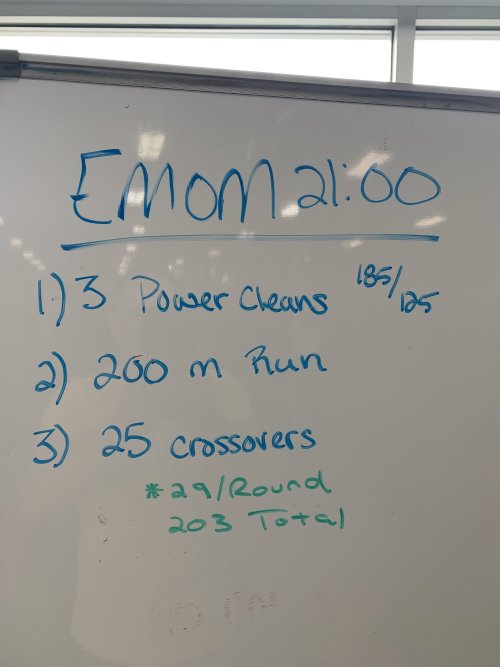 EMOM 21:00
1) 3 Power Cleans 185/125
2) 200 m Run
3) 25 crossovers
*29/Round
203 Total